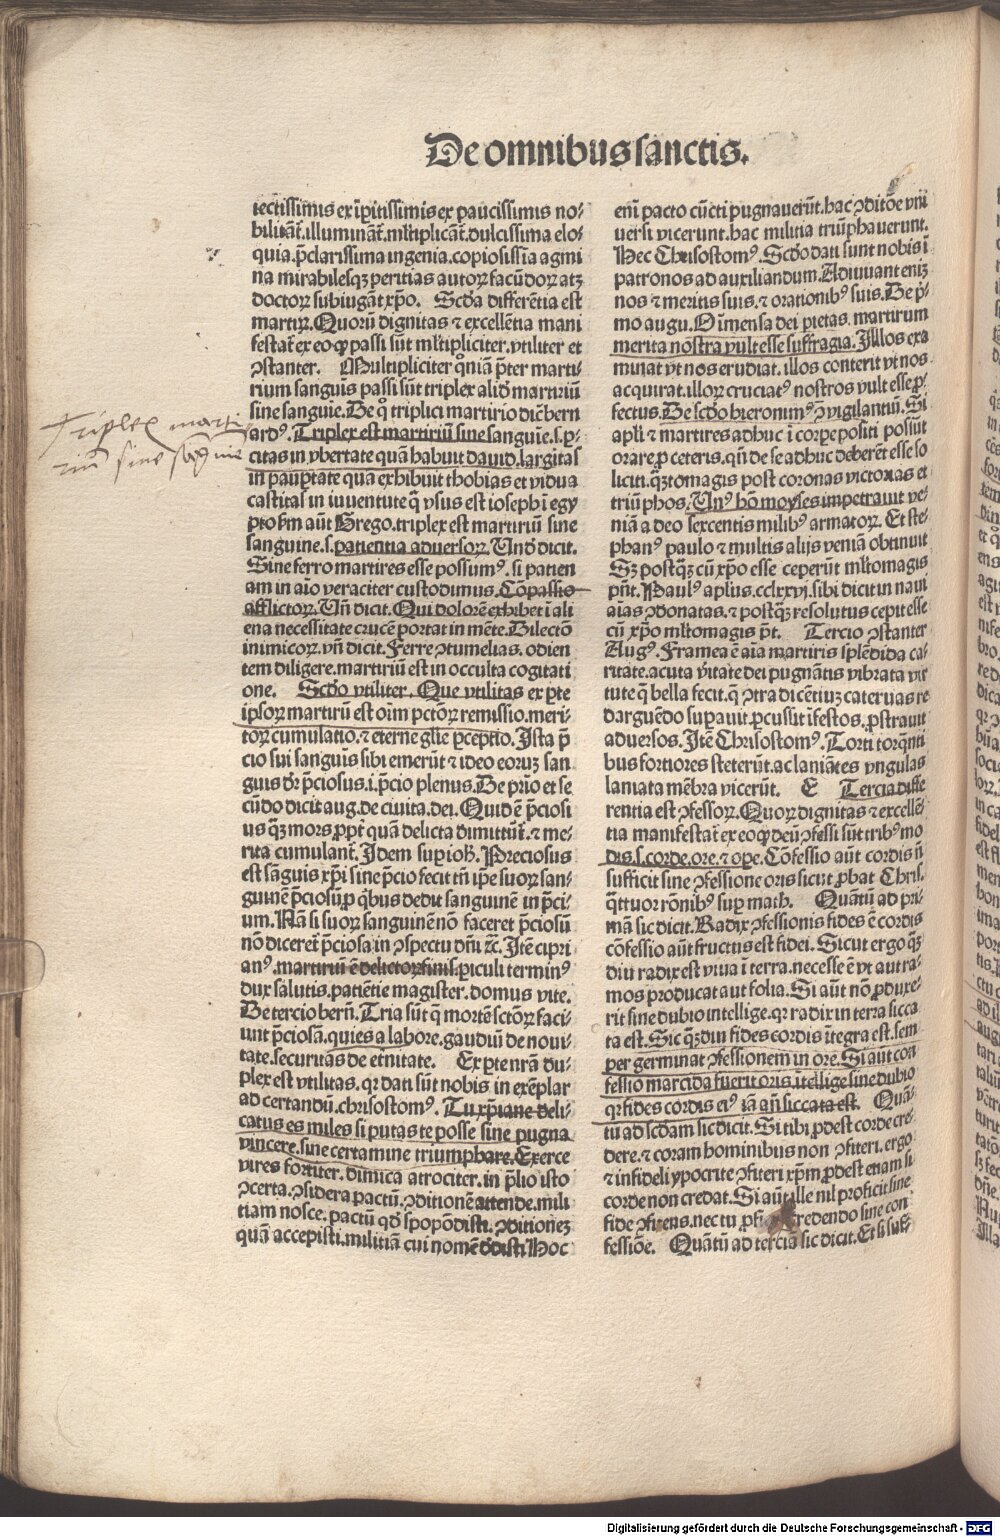 De omnibus sanctis.
iectissimis ex īpitissimis ex paucissimis no⸗
bilitāt̄.illuminānt̄.mltiplicānt̄.dulcissima elo⸗
quia.p̄clarissima ingenia.copiosissīa agmi
na mirabilesqꝫ peritias autoꝝ facūdoꝝ atqꝫ
doctoꝝ subiugāt xp̄o. Scd̄a differētia est
martiꝝ.Quorū dignitas ⁊ excellētia mani
festat̄ ex eo ꝙ passi sūt mltipliciter.vtiliter et
ꝯstanter. Multipliciter qm̄iā p̄ter marti
rium sanguīs passi sūt triplex aliud martiriū
sine sanguīe.De q̊ triplici martirio dic̄ bern
ardꝰ.Triplex est martiriū sine sanguīe.s.p̲⸗
citas in vbertate quā habuit dauid.largitas
in paup̲tate quā exhibuit thobias et vidua
castitas in iuuentute q̄ vsus est ioseph ī egy
pto.Scd̄m aūt Grego.triplex est martiriū sine
sanguine.s.patientia aduersoꝝ.Vn̄ dicit.
Sine ferro martires esse possumꝰ.si patien
tiam in aīo veraciter custodimus.Cōpassio
afflictoꝝ.Vn̄ dicit.Qui dolorē exhibet ī ali
ena necessitate crucē portat in mēte.Dilectō
inimicoꝝ.vn̄ dicit.Ferre ꝯtumelias.odien
tem diligere.martiriū est in occulta cogitati
one. Scd̄o vtiliter.Que vtilitas ex p̲te
ip̄soꝝ martirū est oīm pctōꝝ remissio.meri⸗
toꝝ cumulatio.⁊ eterne glīe p̲ceptio.Ista p̄
cio sui sanguīs sibi emerūt ⁊ ideo eoꝝ san
guis dr̄ p̄ciosus.i.p̄cio plenus.De prīo et se
cūdo dicit aug.de ciuita.dei.Quid ē p̄ciosi
us qꝫ mors propt̄ quā delicta dimittūt̄.⁊ me⸗
rita cumulant̄.Idem sup̲ ioħ.Preciosus
est sāguis xp̄i sine p̄cio fecit tn̄ ip̄e suoꝝ san⸗
guinē p̄ciosū p̲ qͥbus dedit sanguinē in p̄ci⸗
um.Nā si suoꝝ sanguinē nō faceret p̄ciosū
nō diceret̄ p̄ciosa in ꝯspectu dn̄i ⁊c.Itē cipri
anꝰ.martiriū ē delictoꝝ finis.p̲iculi terminꝰ
dux salutis.patiētie magister.domus vite.
De tercio bern̄.Tria sūt q̄ mortē sctōꝝ faci⸗
unt p̄ciosā.quies a labore.gaudiū de noui⸗
tate.securitas de et̄nitate. Ex p̲te nr̄a du⸗
plex est vtilitas.qꝛ dati sūt nobis in exēplar
ad certandū.chrisostomꝰ.Tu xp̄iane deli⸗
catus es miles si putas te posse sine pugna
vincere.sine certamine triumphare.Exerce
vires fortiter.dimica atrociter.in p̄lio isto
ꝯcerta.ꝯsidera pactū.ꝯditionē attende.mili
tiam nosce.pactū qd̄ spopōdisti.ꝯditionē
quā accepisti.militiā cui nomē dedisti.Hoc
enī pacto cūcti pugnauerūt.hac ꝯditōe vni
uersi vicerunt.hac militia triūphauerunt.
Hec Chrisostomꝰ.Scd̄o dati sunt nobis ī
patronos ad auxiliandum.Adiuuant enīꝫ
nos ⁊ meritis suis.⁊ orationibꝰ suis.De p̄⸗
mo augu.O īmensa dei pietas.martirum
merita nostra vult esse suffragia.Illos exa
minat vt nos erudiat.illos conterit vt nos
acquirat.illoꝝ cruciatꝰ nostros vult esse p̲⸗
fectus.De scd̄o hieronimꝰ ꝯ̄ vigilantiū.Si
apl̄i ⁊ martires adhuc ī corpe positi possūt
orare p̲ ceteris.qn̄ de se adhuc deberēt esse so
liciti.qꝫtomagis post coronas victorias et
triūphos.Vnꝰ hō moyses impetrauit ve⸗
niā a deo sexcentis milibꝰ armatoꝝ.Et ste⸗
phanꝰ paulo ⁊ multis alijs veniā obtinuit
Sꝫ postqꝫ cū xp̄o esse ceperūt mltomagis
pn̄t.Paulꝰ apl̄us.cclxxvj.sibi dicit in naui
aīas ꝯdonatas.⁊ postqꝫ resolutus cepit esse
cū xp̄o mltomagis p̄t. Tercio ꝯstanter
Augꝰ.Framea ē aīa martiris splēdida ca⸗
ritate.acuta v̄itate dei pugnātis vibrata vir
tute q̄ bella fecit.q̄ ꝯtra dicētiuꝫ cateruas re
darguēdo sup̲auit.p̲cussit īfestos.p̲strauit
aduersos.Itē Chrisostomꝰ.Torti torq̄nti
bus fortiores steterūt.ac laniātes vngulas
laniata mēbra vicerūt. E Tercia diffe
rentia est ꝯfessoꝝ.Quoꝝ dignitas ⁊ excellē
tia manifestat̄ ex eo ꝙ deū ꝯfessi sūt tribꝰ mo
dis.s.corde.ore.⁊ ope.Cōfessio aūt cordis n̄
sufficit sine ꝯfessione oris sicut p̲bat Chris.
q̄ttuor rōnibꝰ sup̲ math. Quātū ad pri⸗
mā sic dicit.Radix ꝯfessionis fides ē cordis
cōfessio aūt fructus est fidei.Sicut ergo qꝫ
diu radix est viua ī terra.necesse ē vt aut ra⸗
mos producat aut folia.Si aūt nō p̲duxe⸗
rit sine dubio intellige.qꝛ radix in terra sicca
ta est.Sic qꝫdiu fides cordis īt̄egra est.sem
per germinat ꝯfessionem in ore.Si aūt con
fessio marcida fuerit oris.ītellige sine dubio
qꝛ fides cordis eiꝰ iā an̄ siccata est. Quā⸗
tū ad scd̄am sic dicit.Si tibi p̲dest corde cre⸗
dere.⁊ coram hominibus non ꝯfiteri.ergo
⁊ infideli ypocrite ꝯfiteri xp̄m p̲dest etiam si
corde non credat.Si aūt ille nil proficit sine
fide ꝯfitens.nec tu p̲fi credendo sine con
fessiōe. Quātū ad tercia sic dicit.Et si suffi
Triplex marti
riū sine sāguīe
Digitalisierung gefördert durch die Deutsche Forschungsgemeinschaft - DFG